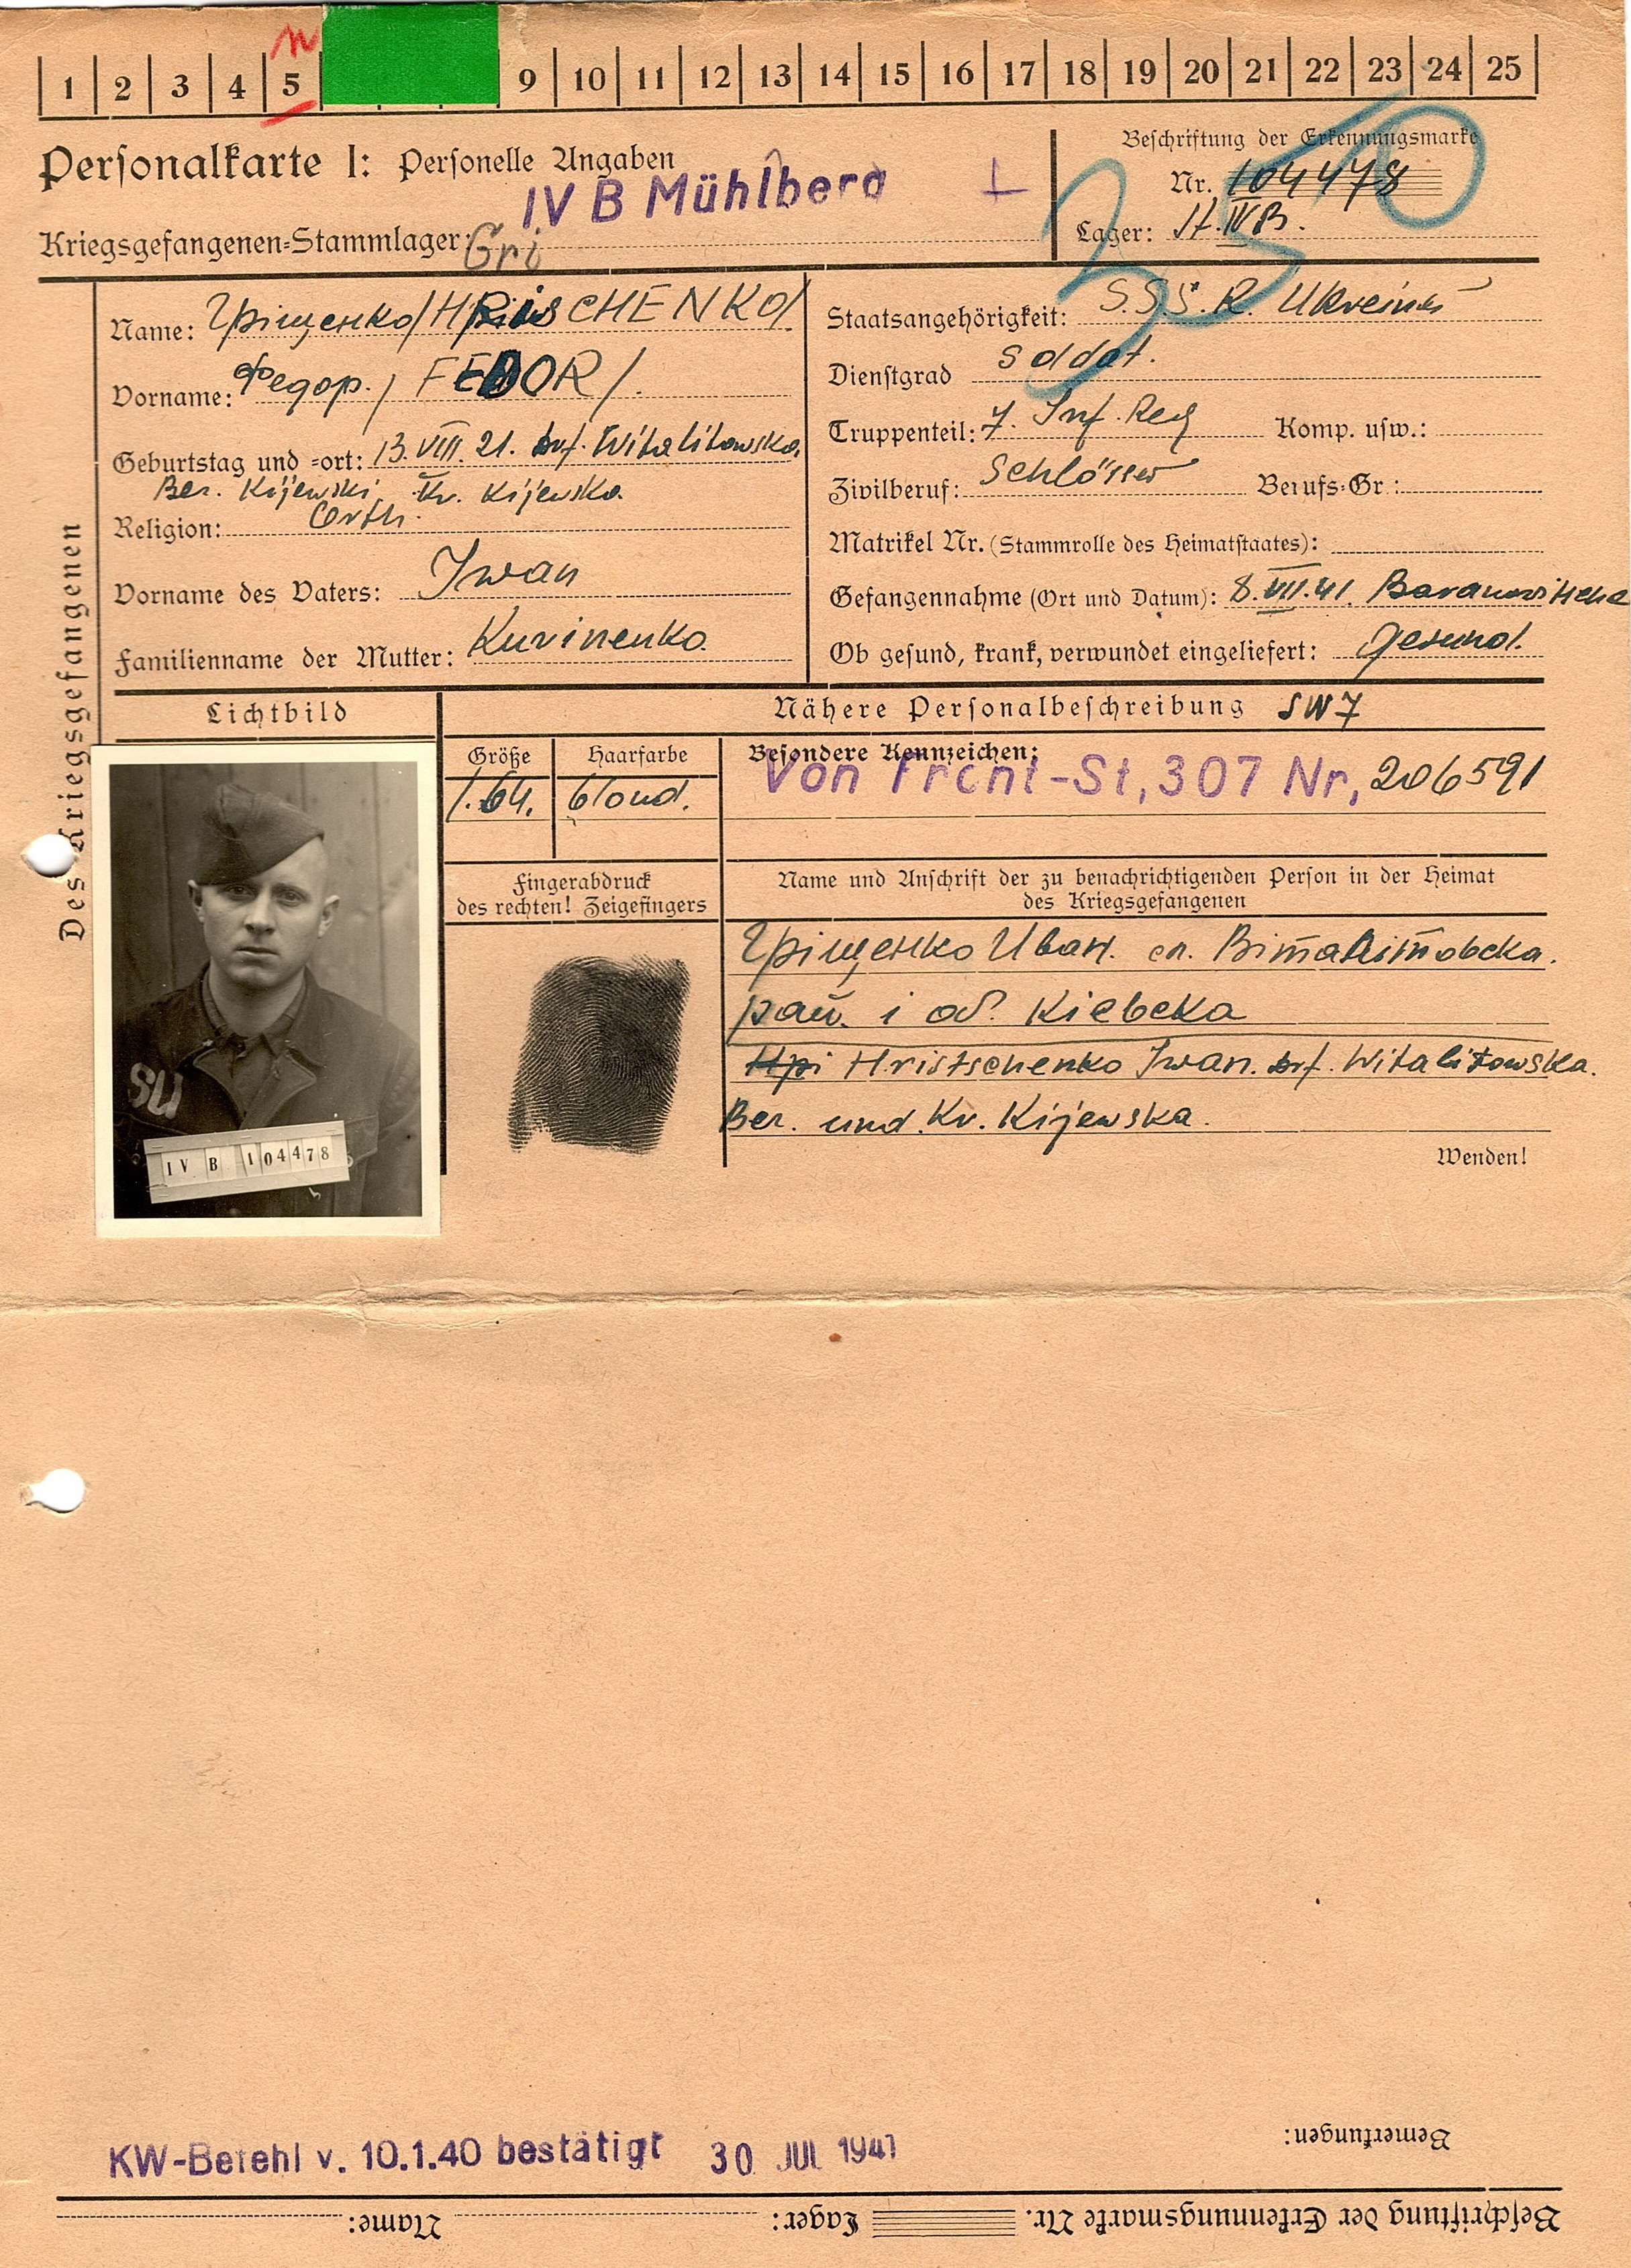 n
1 2 3 4 5 9 10 11 12 13 14 15 16 17 18 19 20 21 22 23 24 25
Personalkarte I: Personelle Angaben
IV B Mühlberg
Kriegsgefangenen-Stammlager: Gri
Beschriftung der Erkennungsmarke
Nr. 104478
Lager: St. IV B.
Des Kriegsgefangenen
Name: Гріщенко /HRisCHENKO/
Vorname: Федор. / FEDOR /.
Geburtstag und -ort: 13. VIII. 21. Drf. Witalitowska,
Ber. Kijewski, Kr. Kijewska.
Religion: Orth.
Vorname des Vaters: Iwan
Familienname der Mutter: Kurinenko.
Staatsangehörigkeit: S.S.S.R. Ukreines
Dienstgrad Soldat.
Truppenteil: 7. Inf. Reg Komp. usw.:
Zivilberuf: Schlösser Berufs-Gr.:
Matrikel Nr. (Stammrolle des Heimatstaates):
Gefangennahme (Ort und Datum): 8. VII. 41. Baranowitsche
Ob gesund, krank, verwundet eingeliefert: Gesund.
Lichtbild
Nähere Personalbeschreibung SW 7
Größe Haarfarbe
1.64. blond.
Besondere Kennzeichen:
Von Front-St, 307 Nr, 206591
Fingerabdruck
des rechten! Zeigefingers
Name und Anschrift der zu benachrichtigenden Person in der Heimat
des Kriegsgefangenen
Гріщенко Иван. сл. Віталітовска.
рай. і об. Кіевска
Нрі Hristschenko Iwan. Drf. Witalitowska.
Ber. und. Kr. Kijewska.
Wenden!
SU
IV B 104478
Bemerkungen:
KW-Befehl v. 10.1.40 bestätigt 30 JUL 1941
Beschriftung der Erkennungsmarke Nr. Lager: Name: